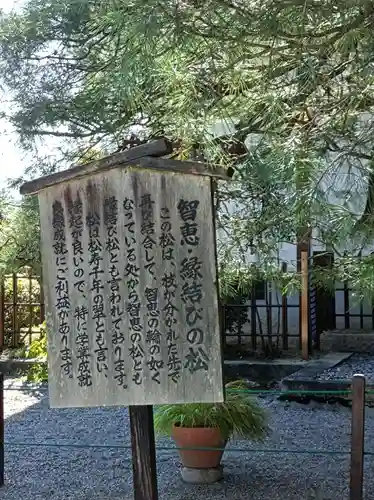 智恵・縁結びの松
この松は、枝が分かれた先で
再び結合して、智恵の輪の如く
なっている処から智恵の松とも
縁結び松とも言われております。
松は松寿千年の翠とも言い
縁起が良いので、特に学業成就
良縁成就にご利益があります。